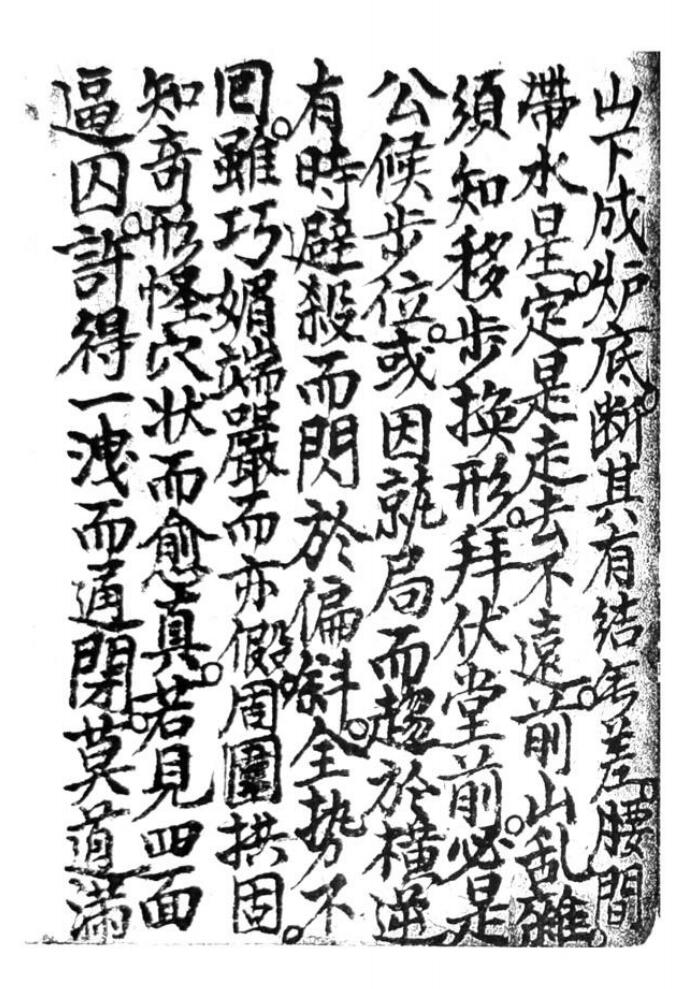 山下成炉底。断其有結無差。腰間
帶水星。定是走去不遠。前山乱雜。
須知移步换形。拜伏堂前。必是
公候步位。或因就局而趨於橫逆
有時避殺而閃於偏斜。全势不
回。雖巧媚端嚴而亦假。周圍拱固。
知奇形怪穴状而愈真。若見四面
逼囚。許得一洩而通閉。莫道滿